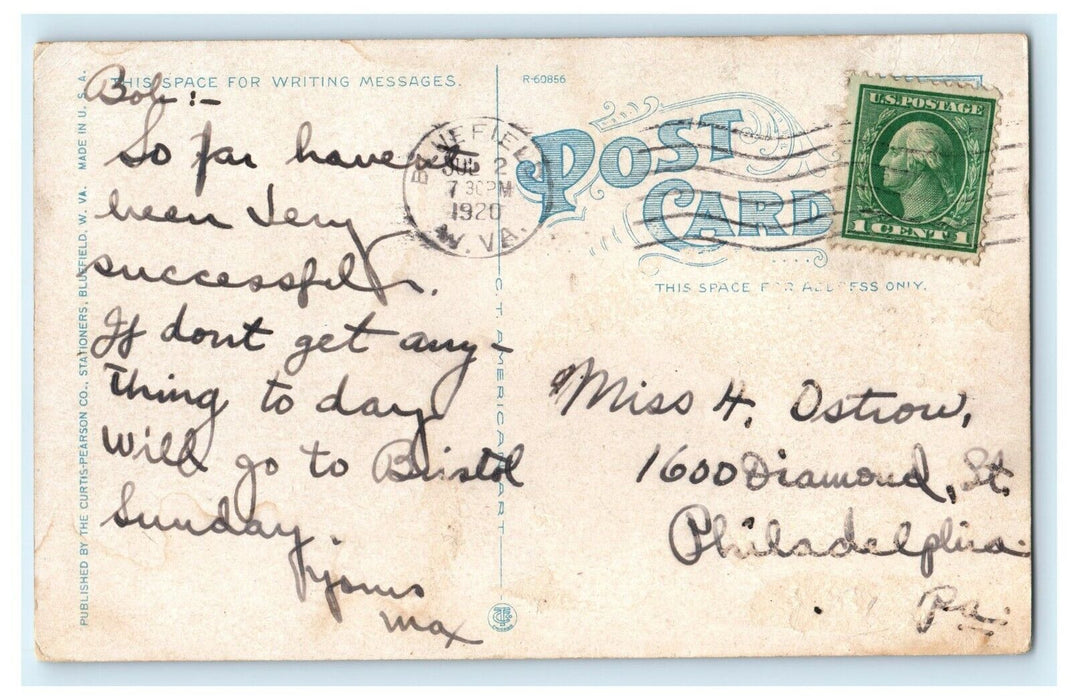 THIS SPACE FOR WRITING MESSAGES.
Bob:-
So far have not
been very
successful.
If dont get any-
thing to day
will go to Bristol
Sunday.
yours
Max
PUBLISHED BY THE CURTIS-PEARSON CO., STATIONERS, BLUEFIELD, W. VA. MADE IN U.S.A.
C.T. AMERICAN ART
R-60856
POST
CARD
BLUEFIELD
2
7 30PM
1920
W. VA.
U.S. POSTAGE
1 CENT 1
THIS SPACE FOR ADDRESS ONLY.
Miss H. Ostrow,
1600 Diamond, St.
Philadelphia
Pa.